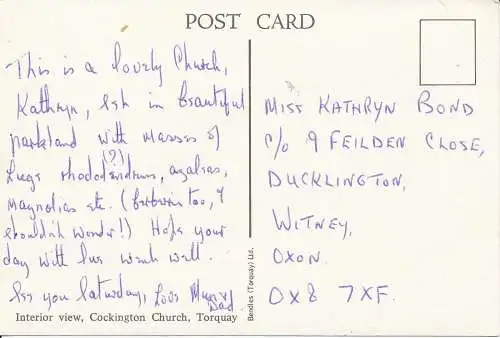 POST CARD
This is a lovely Church,
Kathryn, set in beautiful
parkland with masses of
huge rhododendrums, azaleas,
(?)
Magnolias etc. (barbaris too, I
shouldn't wonder!) Hope your
day with Sue went well.
See you Saturday, Love Mum &
Dad
Interior view, Cockington Church, Torquay
Bendles (Torquay) Ltd.
MISS KATHRYN BOND
c/o 9 FEILDEN CLOSE,
DUCKLINGTON,
WITNEY,
OXON.
OX8 7XF.